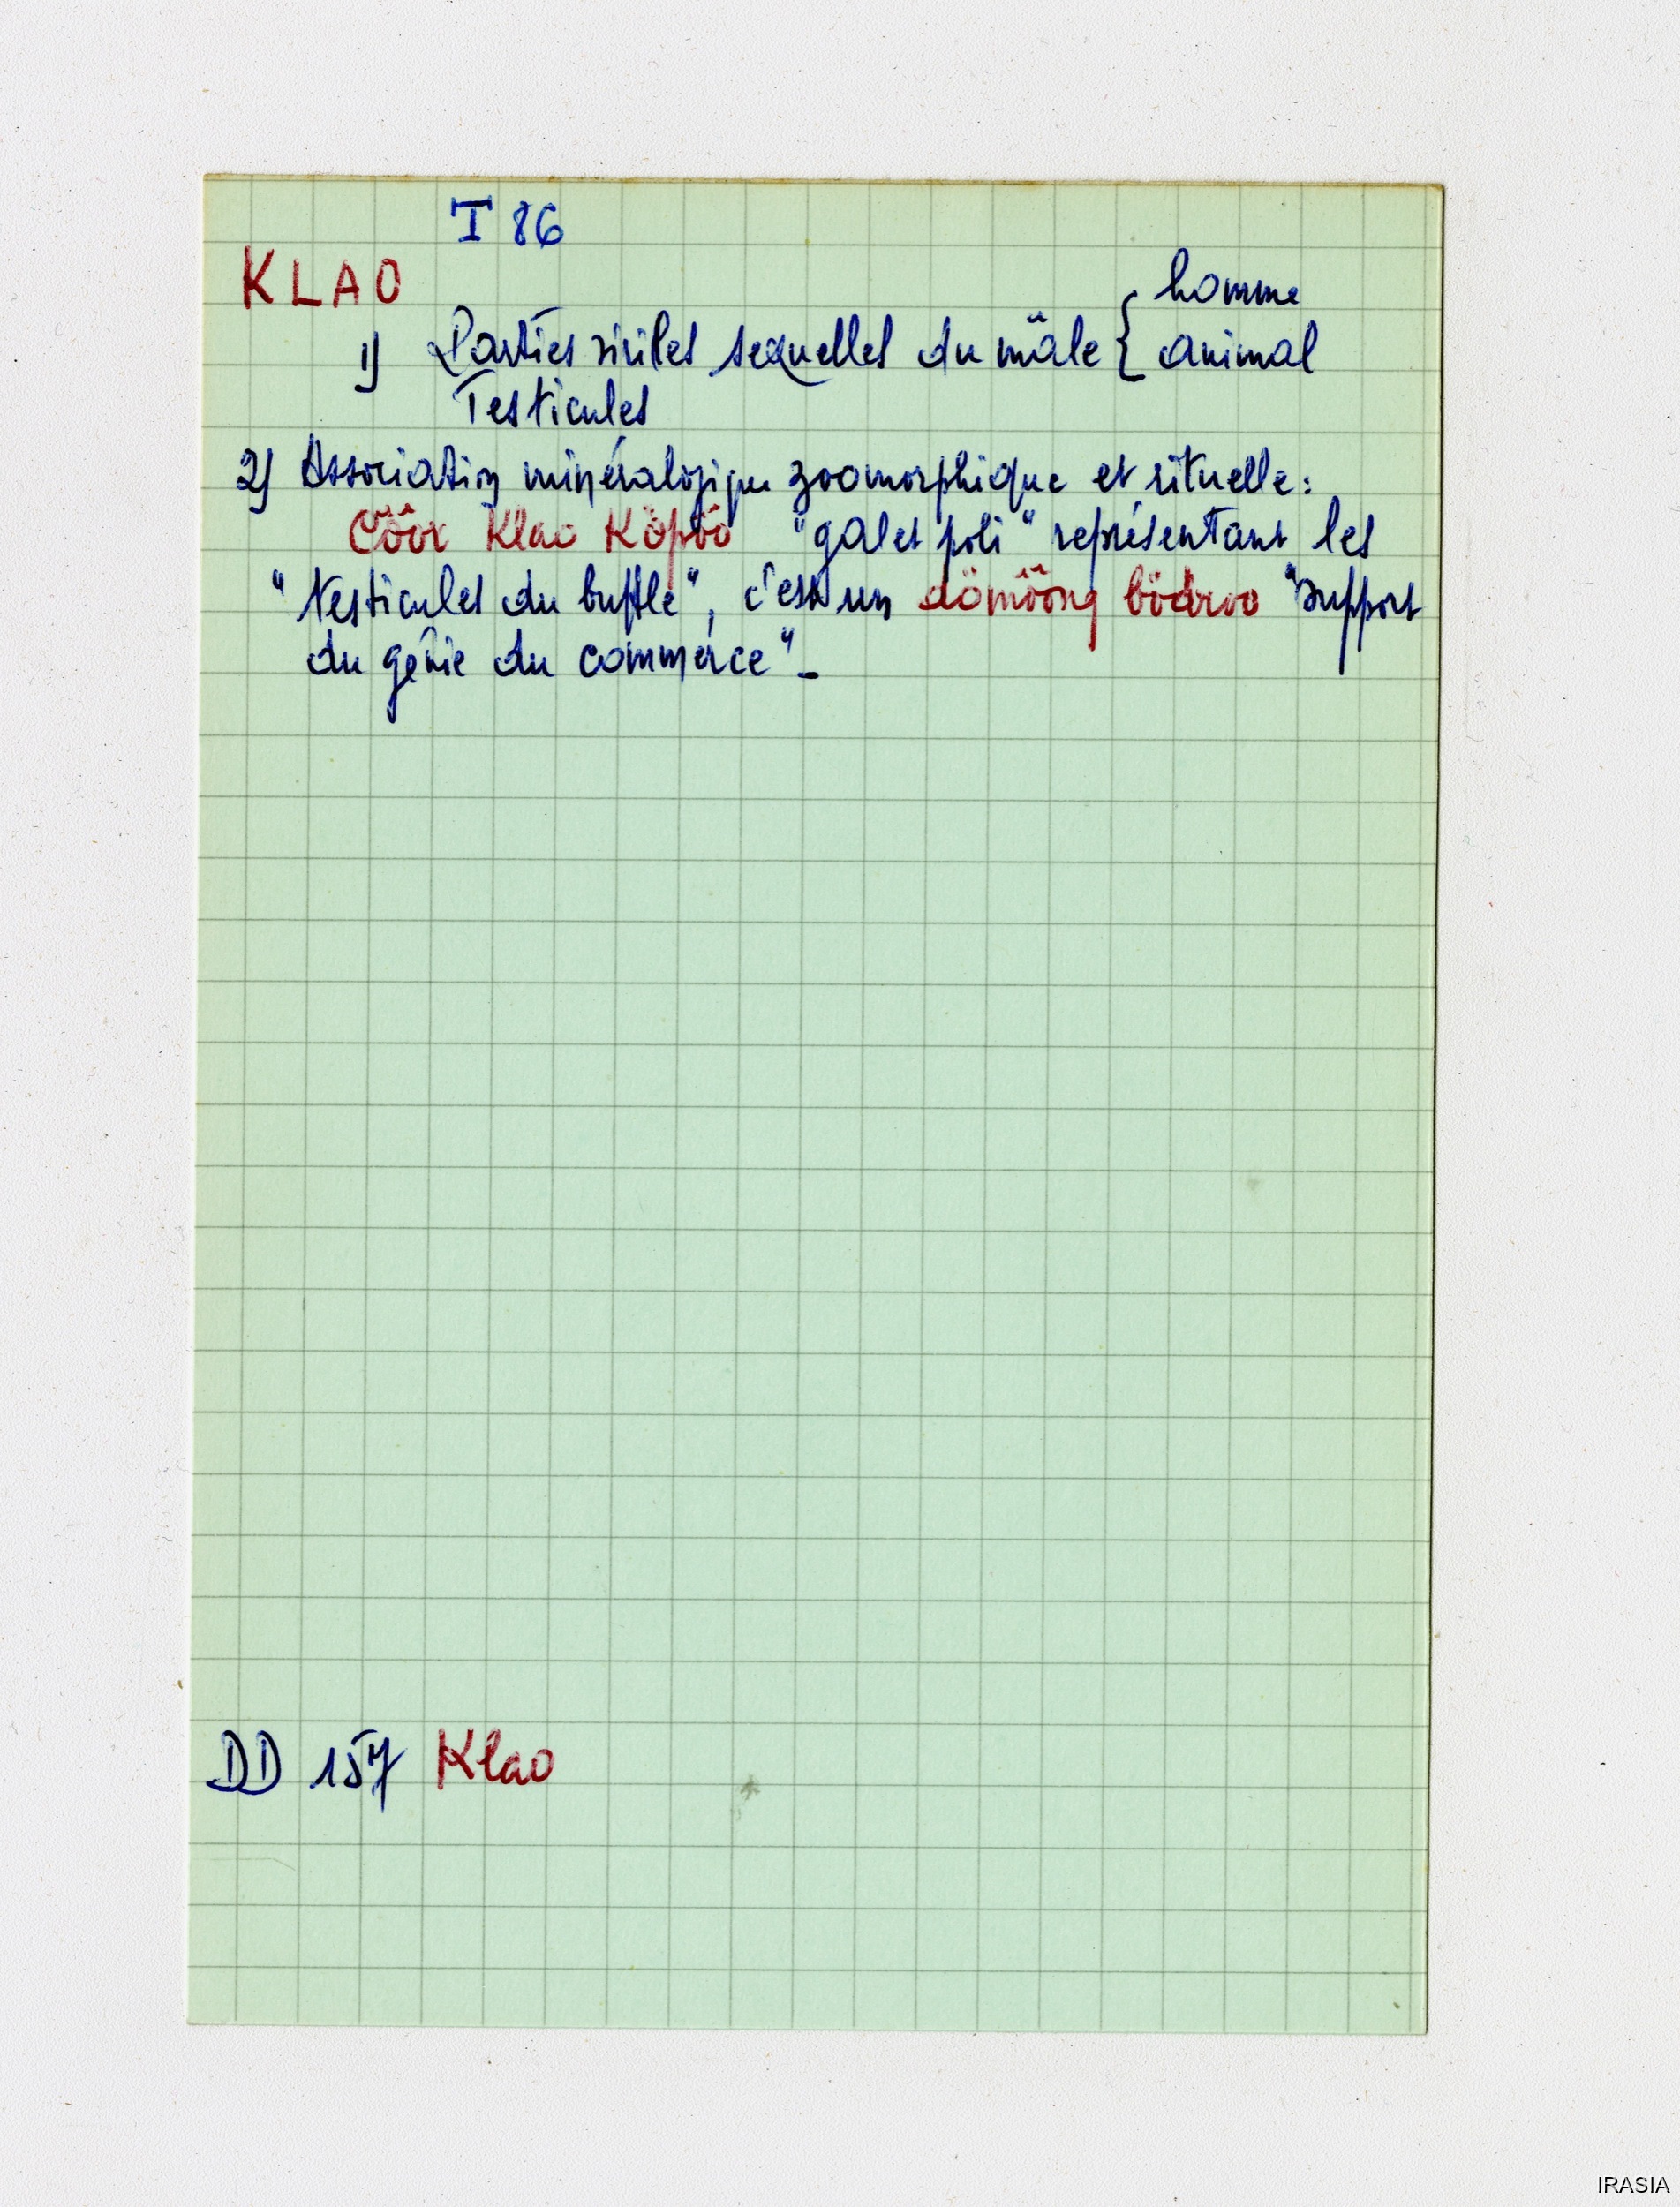 T 86
KLAO
1) Parties viriles sexuelles du mâle { homme
animal
Testicules
2) Association minéralogique zoomorphique et rituelle :
Klao "galet poli" représentant les
"testicules du buffle", c'est un dömôông bödroo "support
du génie du commerce" -
DD 157 Klao
IRASIA